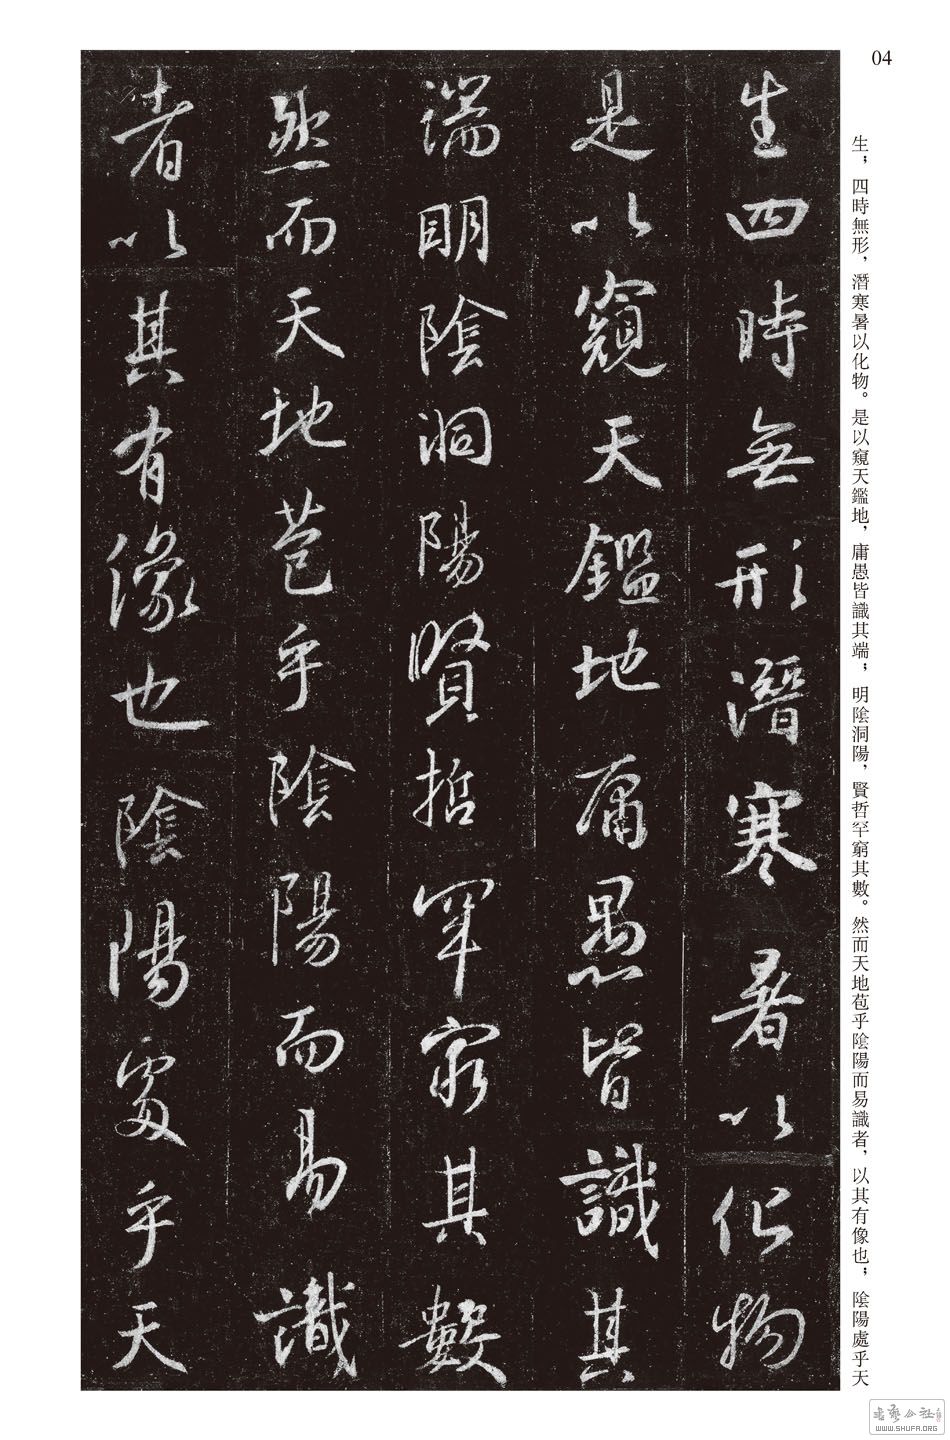 04
生；四時無形，潛寒暑以化物。是以窺天鑑地，庸愚皆識其端；明陰洞陽，賢哲罕窮其數。然而天地苞乎陰陽而易識者，以其有像也；陰陽處乎天
生四時無形潛寒暑以化物
是以窺天鑑地庸愚皆識其
端明陰洞陽賢哲罕窮其數
然而天地苞乎陰陽而易識
者以其有像也陰陽處乎天
WWW.SHUFA.ORG